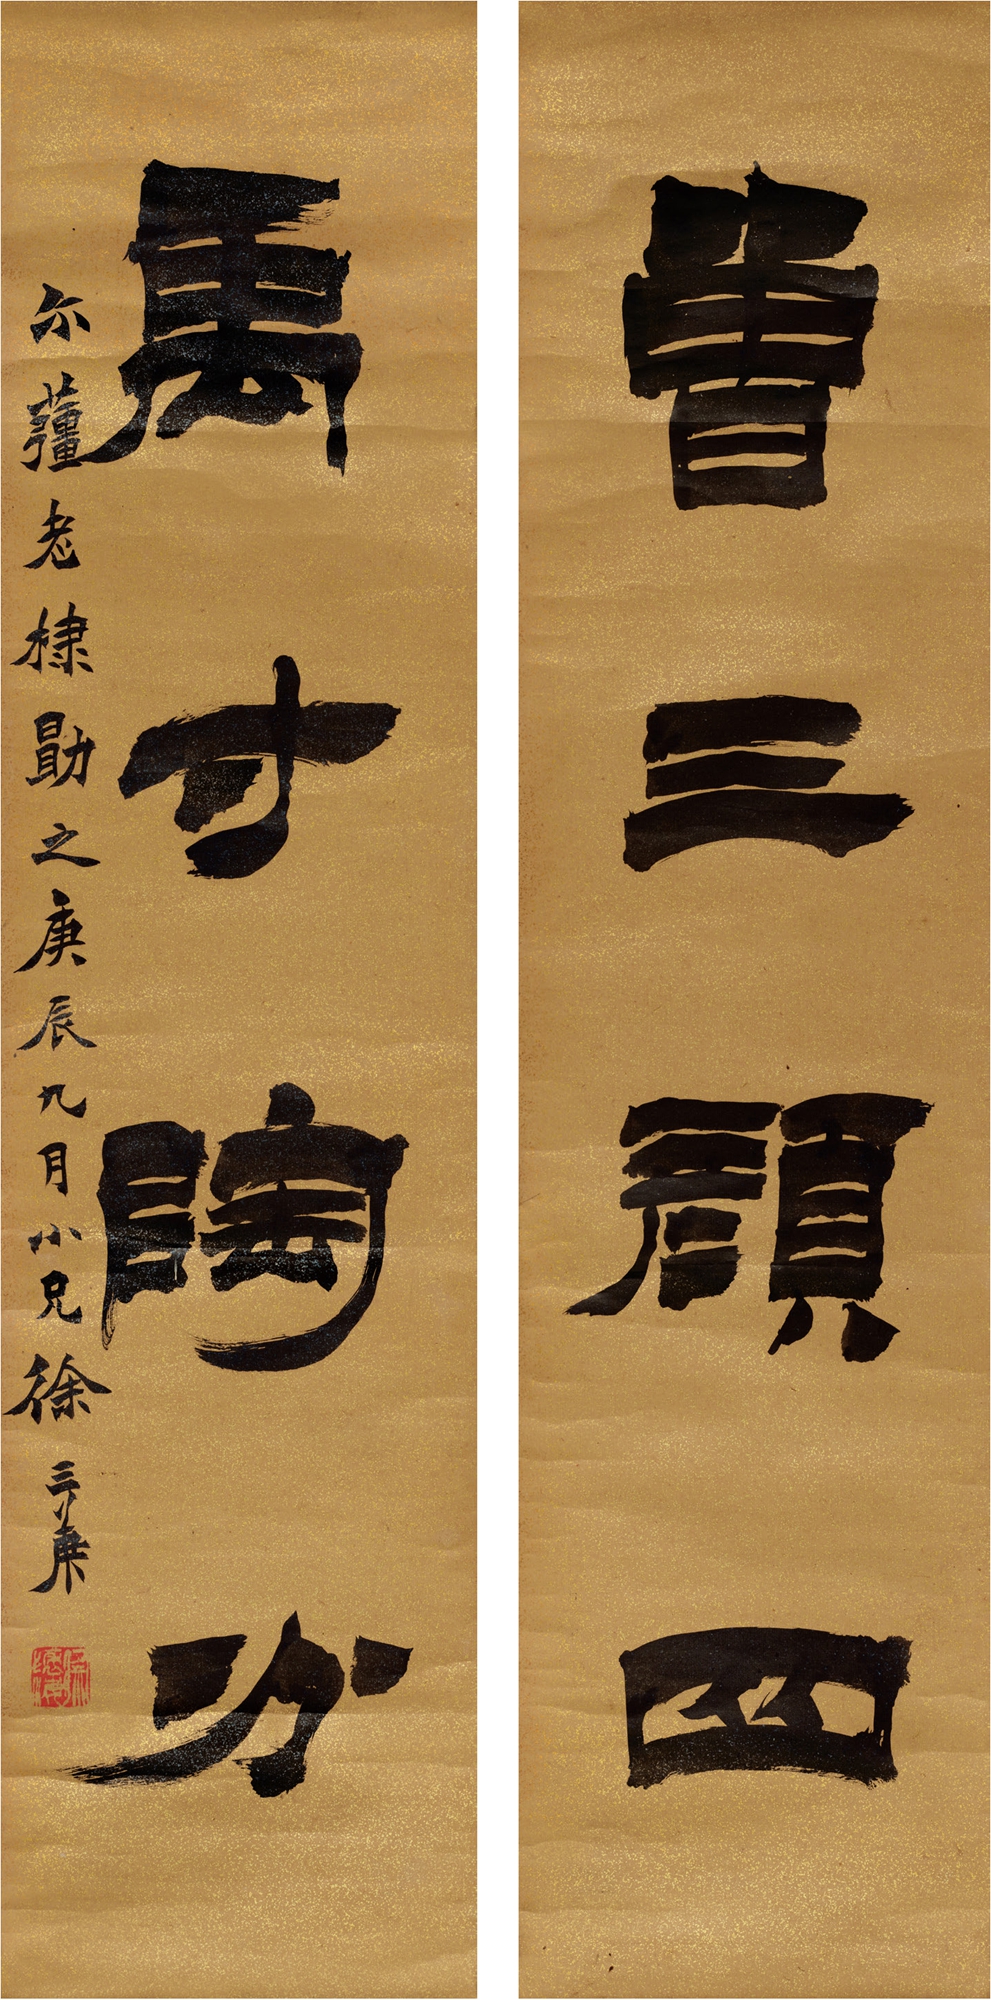 曾三顔四
禹寸陶分
尒蘁老棣勖之庚辰九月小兄徐三庚